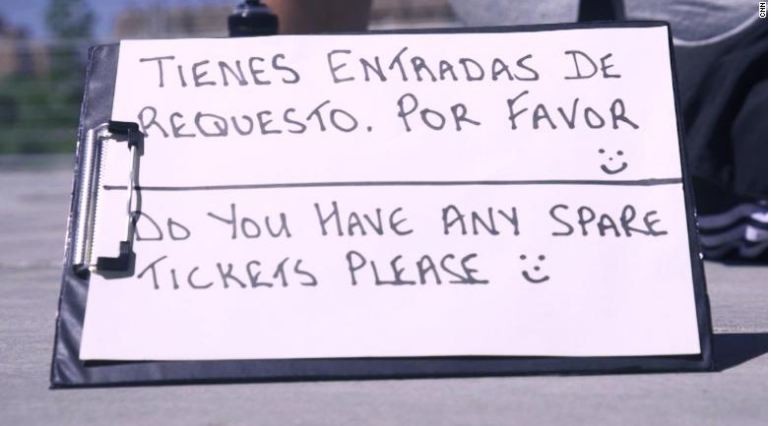 TIENES ENTRADAS DE
REQUESTO. POR FAVOR
DO YOU HAVE ANY SPARE
TICKETS PLEASE
CNN